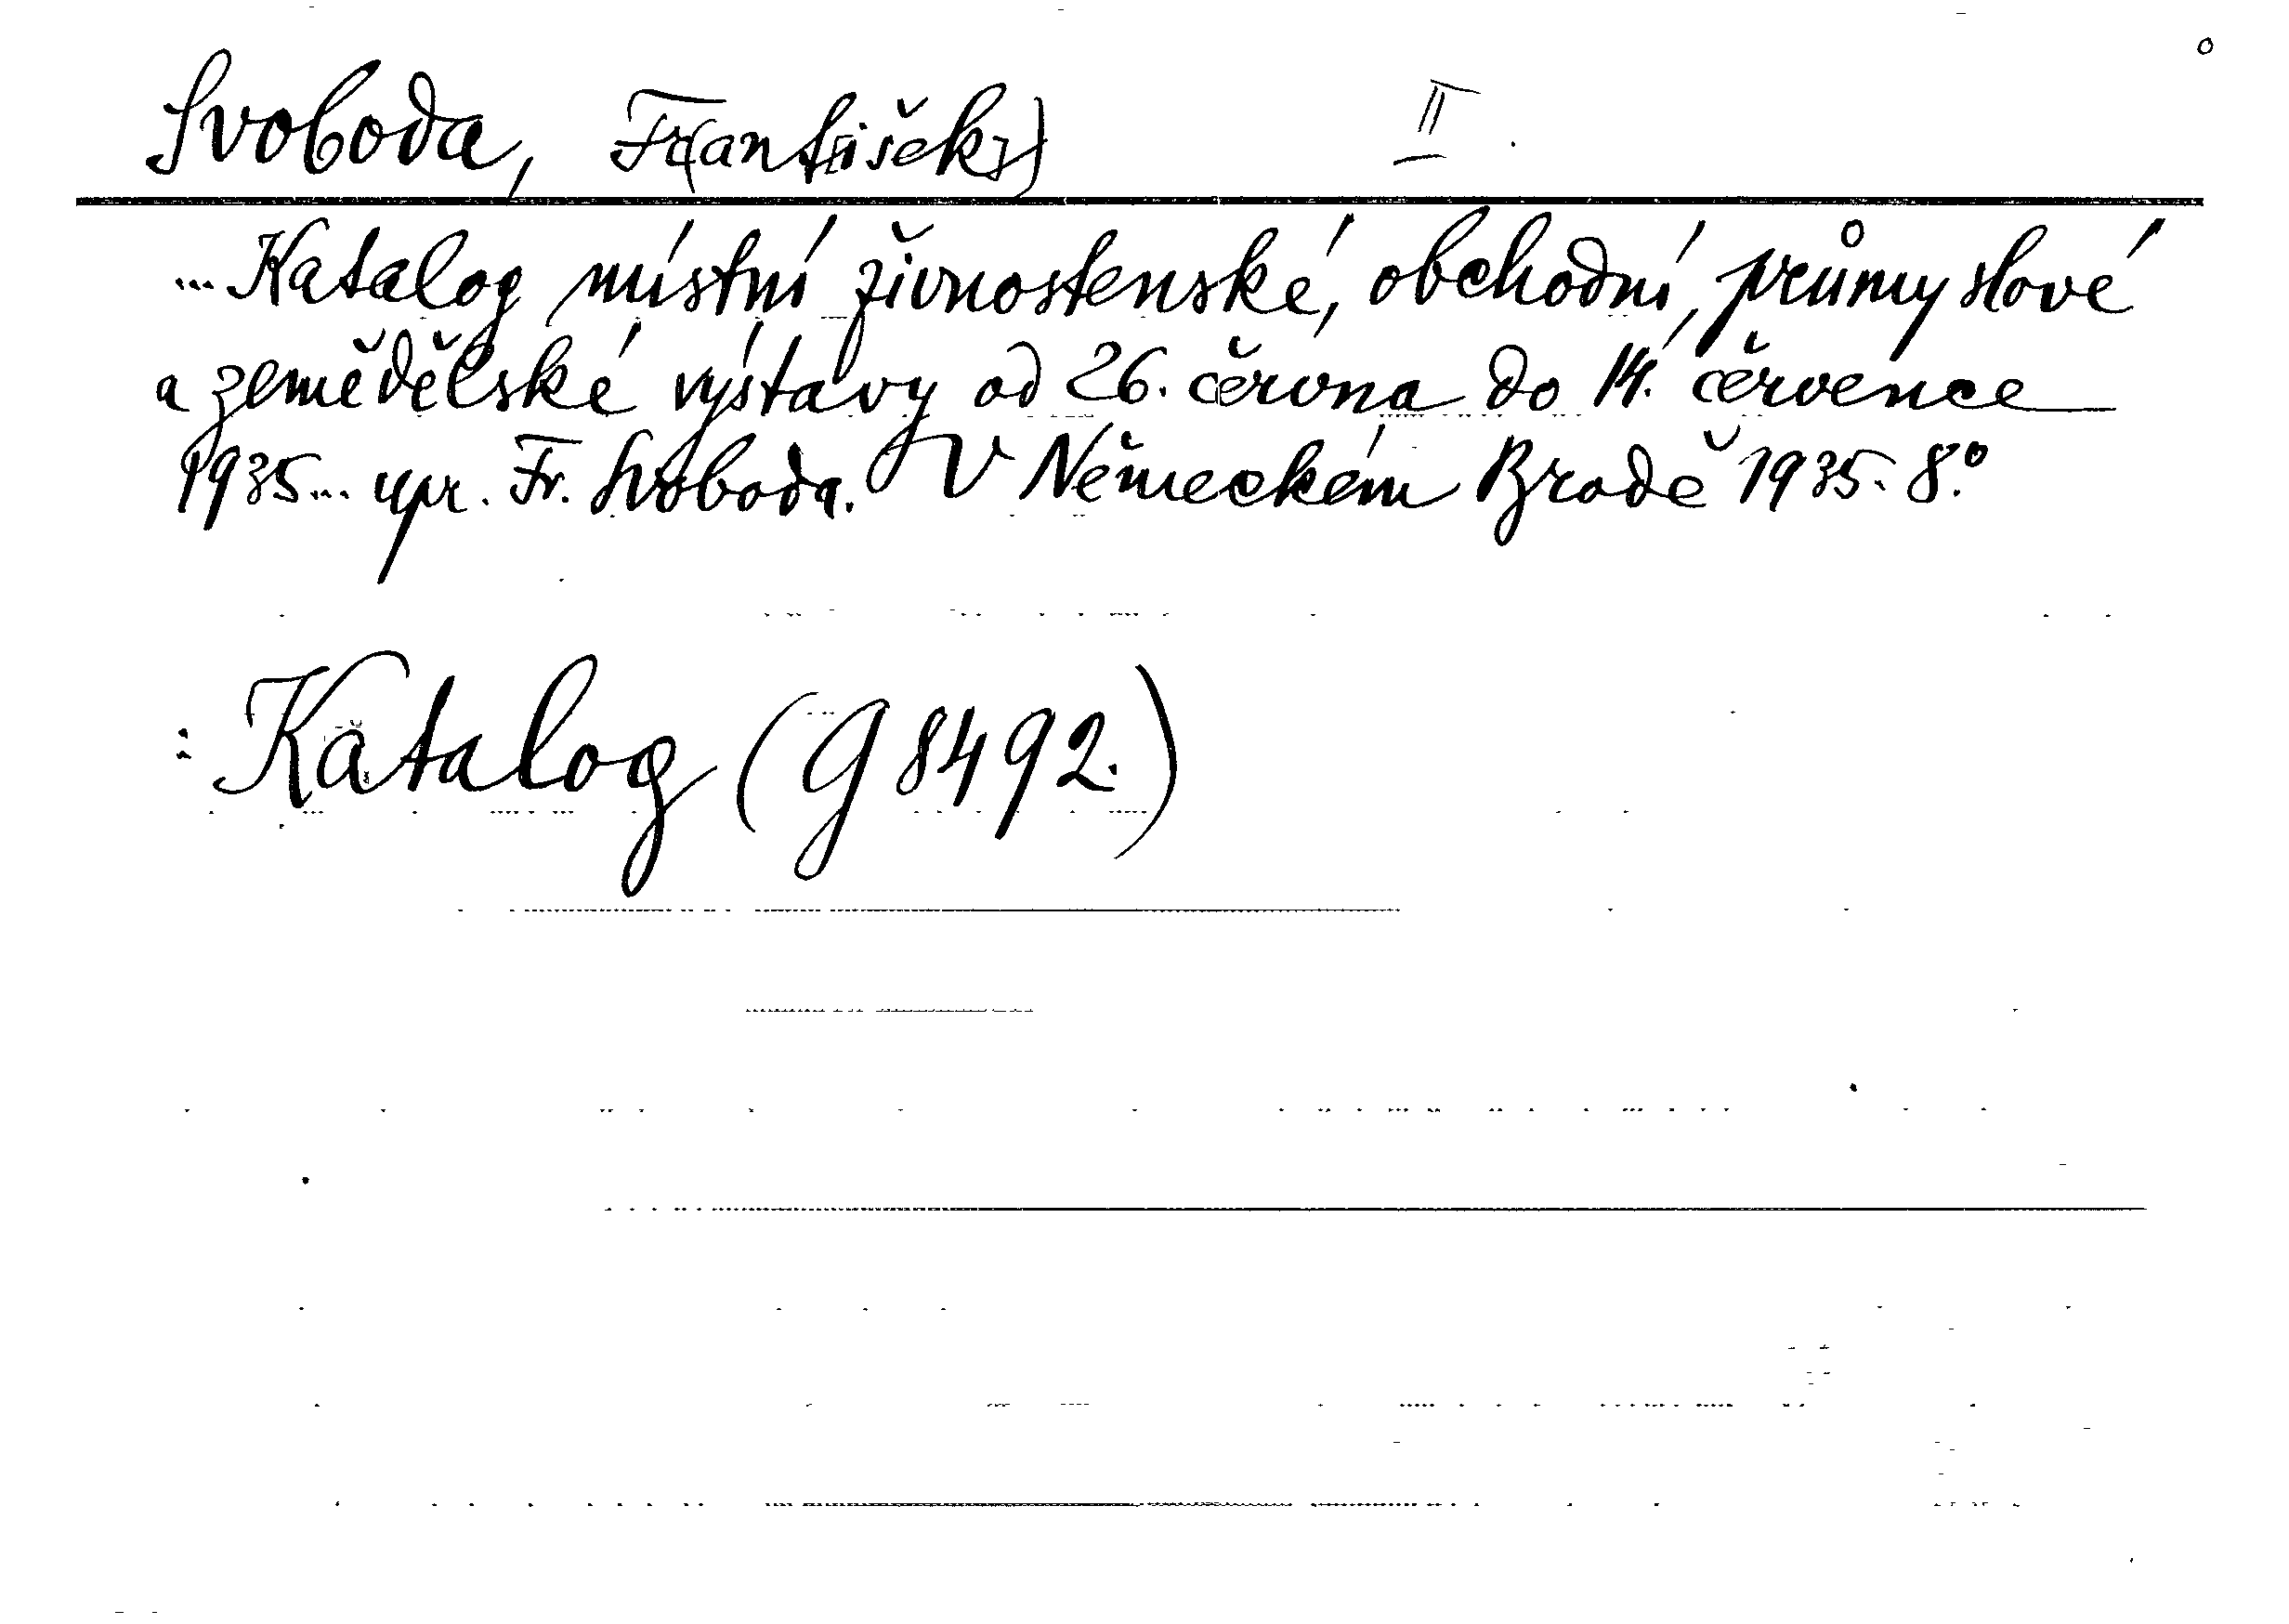 Svoboda, Fr(antišek) II.
... Katalog místní živnostenské, obchodní, průmyslové
a zemědělské výstavy od 26. června do 14. července
1935... upr. Fr. Svoboda. V Německém Brodě 1935. 8.°
: Katalog (G 8492.)